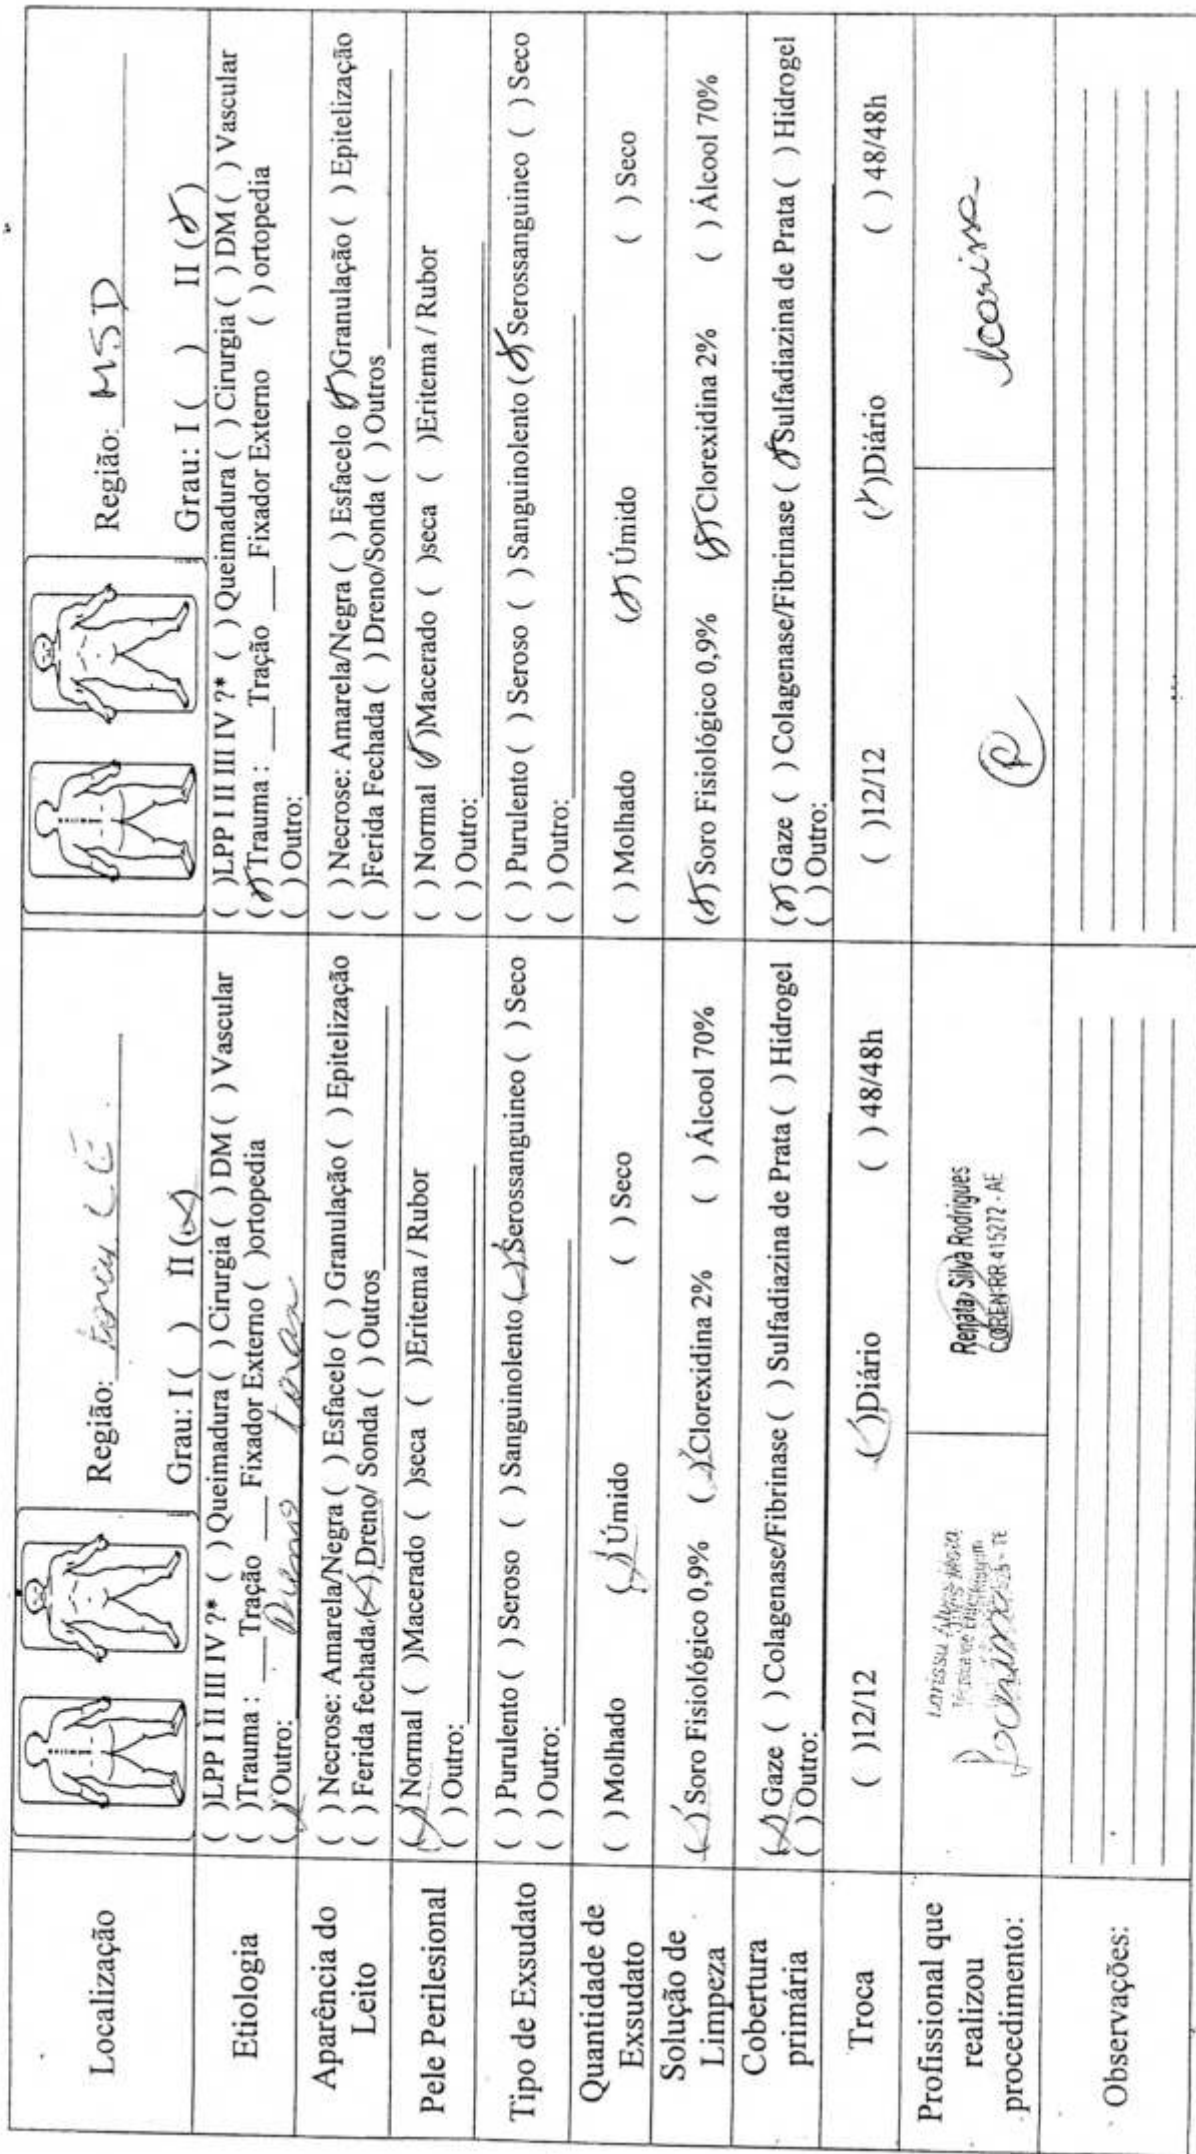 Localização
Região: tórax L E.
Grau: I ( ) II (x)
Região: MSD
Grau: I ( ) II (x)
Etiologia
( )LPP I II III IV ?* ( ) Queimadura ( ) Cirurgia ( ) DM ( ) Vascular
( )Trauma : ___Tração ___ Fixador Externo ( )ortopedia
(x)Outro: Dreno torax
( )LPP I II III IV ?* ( ) Queimadura ( ) Cirurgia ( ) DM ( ) Vascular
(x)Trauma : ___Tração ___ Fixador Externo ( ) ortopedia
( ) Outro:
Aparência do
Leito
( ) Necrose: Amarela/Negra ( ) Esfacelo ( ) Granulação ( ) Epitelização
( ) Ferida fechada (x) Dreno/ Sonda ( ) Outros
( ) Necrose: Amarela/Negra ( ) Esfacelo (x)Granulação ( ) Epitelização
( )Ferida Fechada ( ) Dreno/Sonda ( ) Outros
Pele Perilesional
(x) Normal ( )Macerado ( )seca ( )Eritema / Rubor
( ) Outro:
( ) Normal (x)Macerado ( )seca ( )Eritema / Rubor
( ) Outro:
Tipo de Exsudato
( ) Purulento ( ) Seroso ( ) Sanguinolento (x)Serossanguineo ( ) Seco
( ) Outro:
( ) Purulento ( ) Seroso ( ) Sanguinolento (x)Serossanguineo ( ) Seco
( ) Outro:
Quantidade de
Exsudato
( ) Molhado (x)Úmido ( ) Seco
( ) Molhado (x) Úmido ( ) Seco
Solução de
Limpeza
(x) Soro Fisiológico 0,9% (x)Clorexidina 2% ( ) Álcool 70%
(x) Soro Fisiológico 0,9% (x)Clorexidina 2% ( ) Álcool 70%
Cobertura
primária
(x) Gaze ( ) Colagenase/Fibrinase ( ) Sulfadiazina de Prata ( ) Hidrogel
( ) Outro:
(x) Gaze ( ) Colagenase/Fibrinase (x)Sulfadiazina de Prata ( ) Hidrogel
( ) Outro:
Troca
( )12/12 (x)Diário ( ) 48/48h
( )12/12 (x)Diário ( ) 48/48h
Profissional que
realizou
procedimento:
Larissa Alves
Técnica de Enfermagem
- TE
Larissa
Renata Silva Rodrigues
COREN-RR 415272 - AE
R
Larissa
Observações: